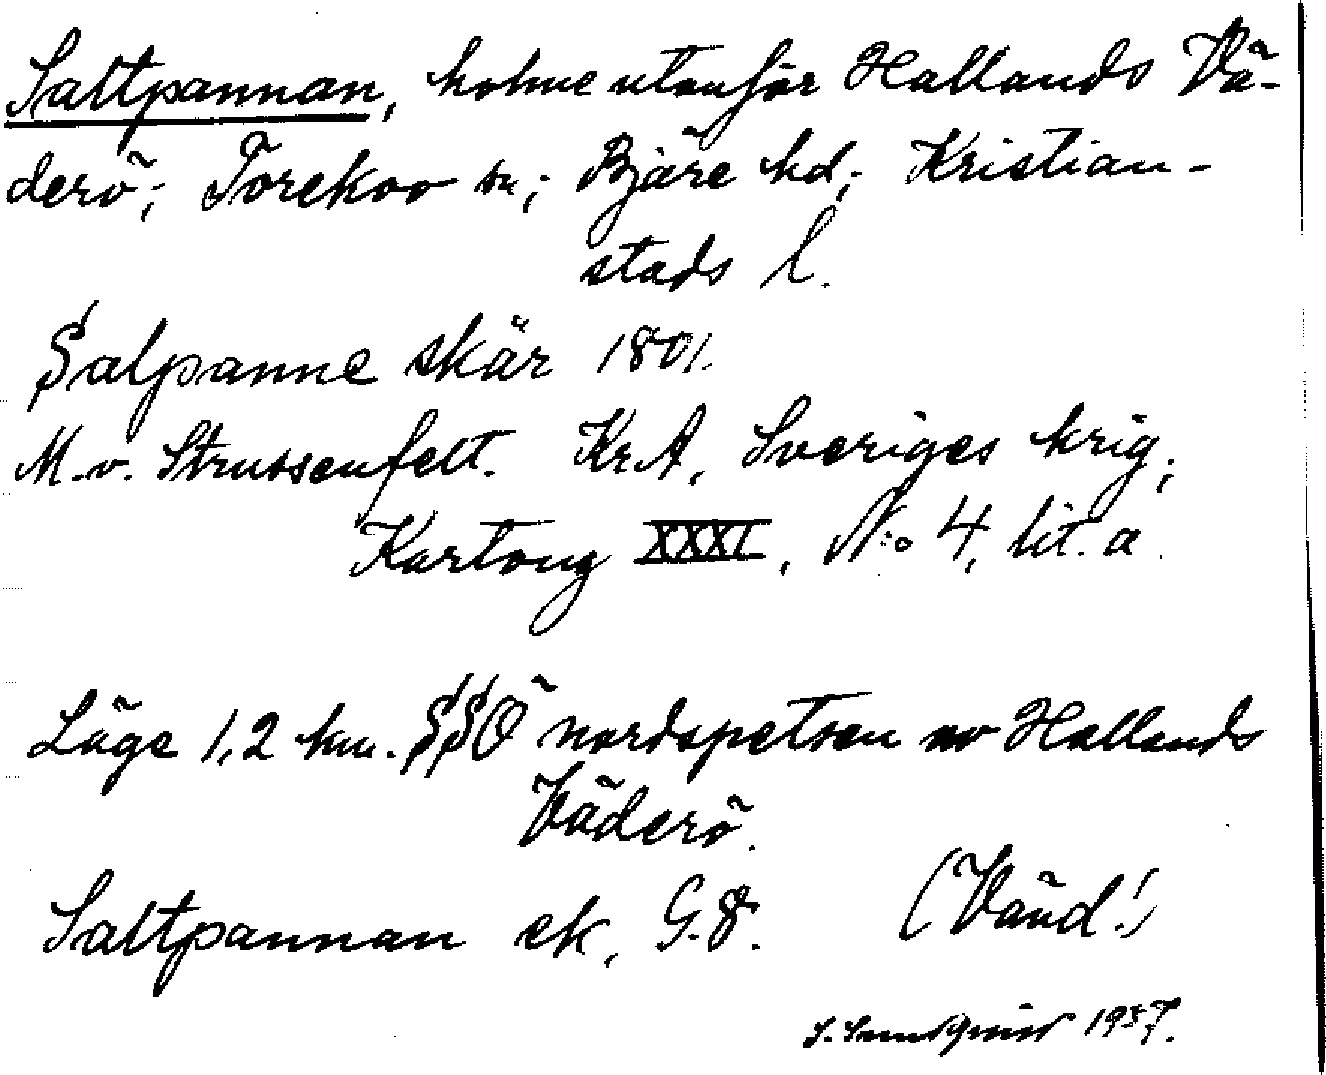 Saltpannan, holme utanför Hallands Vä-
derö; Torekov sn; Bjäre hd; Kristian-
stads l.
Salpanne skär 1801.
M. v. Strussenfelt. Kr.A, Sveriges krig;
Kartong XXXI, N:o 4, lit. a.
Läge 1,2 km. SSO nordspetsen av Hallands
Väderö.
Saltpannan ek, G.8. (Vänd!)
1937.